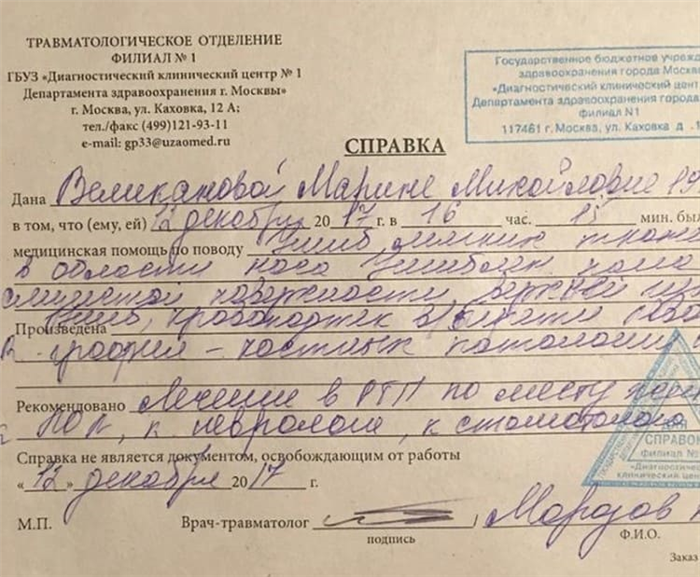 ТРАВМАТОЛОГИЧЕСКОЕ ОТДЕЛЕНИЕ
ФИЛИАЛ № 1
ГБУЗ «Диагностический клинический центр № 1
Департамента здравоохранения г. Москвы»
г. Москва, ул. Каховка, 12 А;
тел./факс (499)121-93-11
e-mail: gp33@uzaomed.ru
Государственное бюджетное учрежд
здравоохранения города Москв
«Диагностический клинический цент
Департамента здравоохранения города
филиал N1
117461 г. Москва, ул. Каховка д
СПРАВКА
Дана Великановой Марине Михайловне 19
в том, что (ему, ей) 12 декабря 2017 г. в 16 час. 15 мин. был
медицинская помощь по поводу Ушиб мягких ткан
в области носа Ушибленная рана
слизистой поверхности верхней
Ушиб, кровоподтек в области
Произведена
графия – костных патологии
Рекомендовано Лечение в РТП по месту
к неврологу, к стоматологу
Справка не является документом, освобождающим от работы
« 12 » декабря 2017 г.
СПРАВОК
филиал №
«Диагностиче
клинический цен
М.П. Врач-травматолог Морозов
подпись Ф.И.О.
Заказ